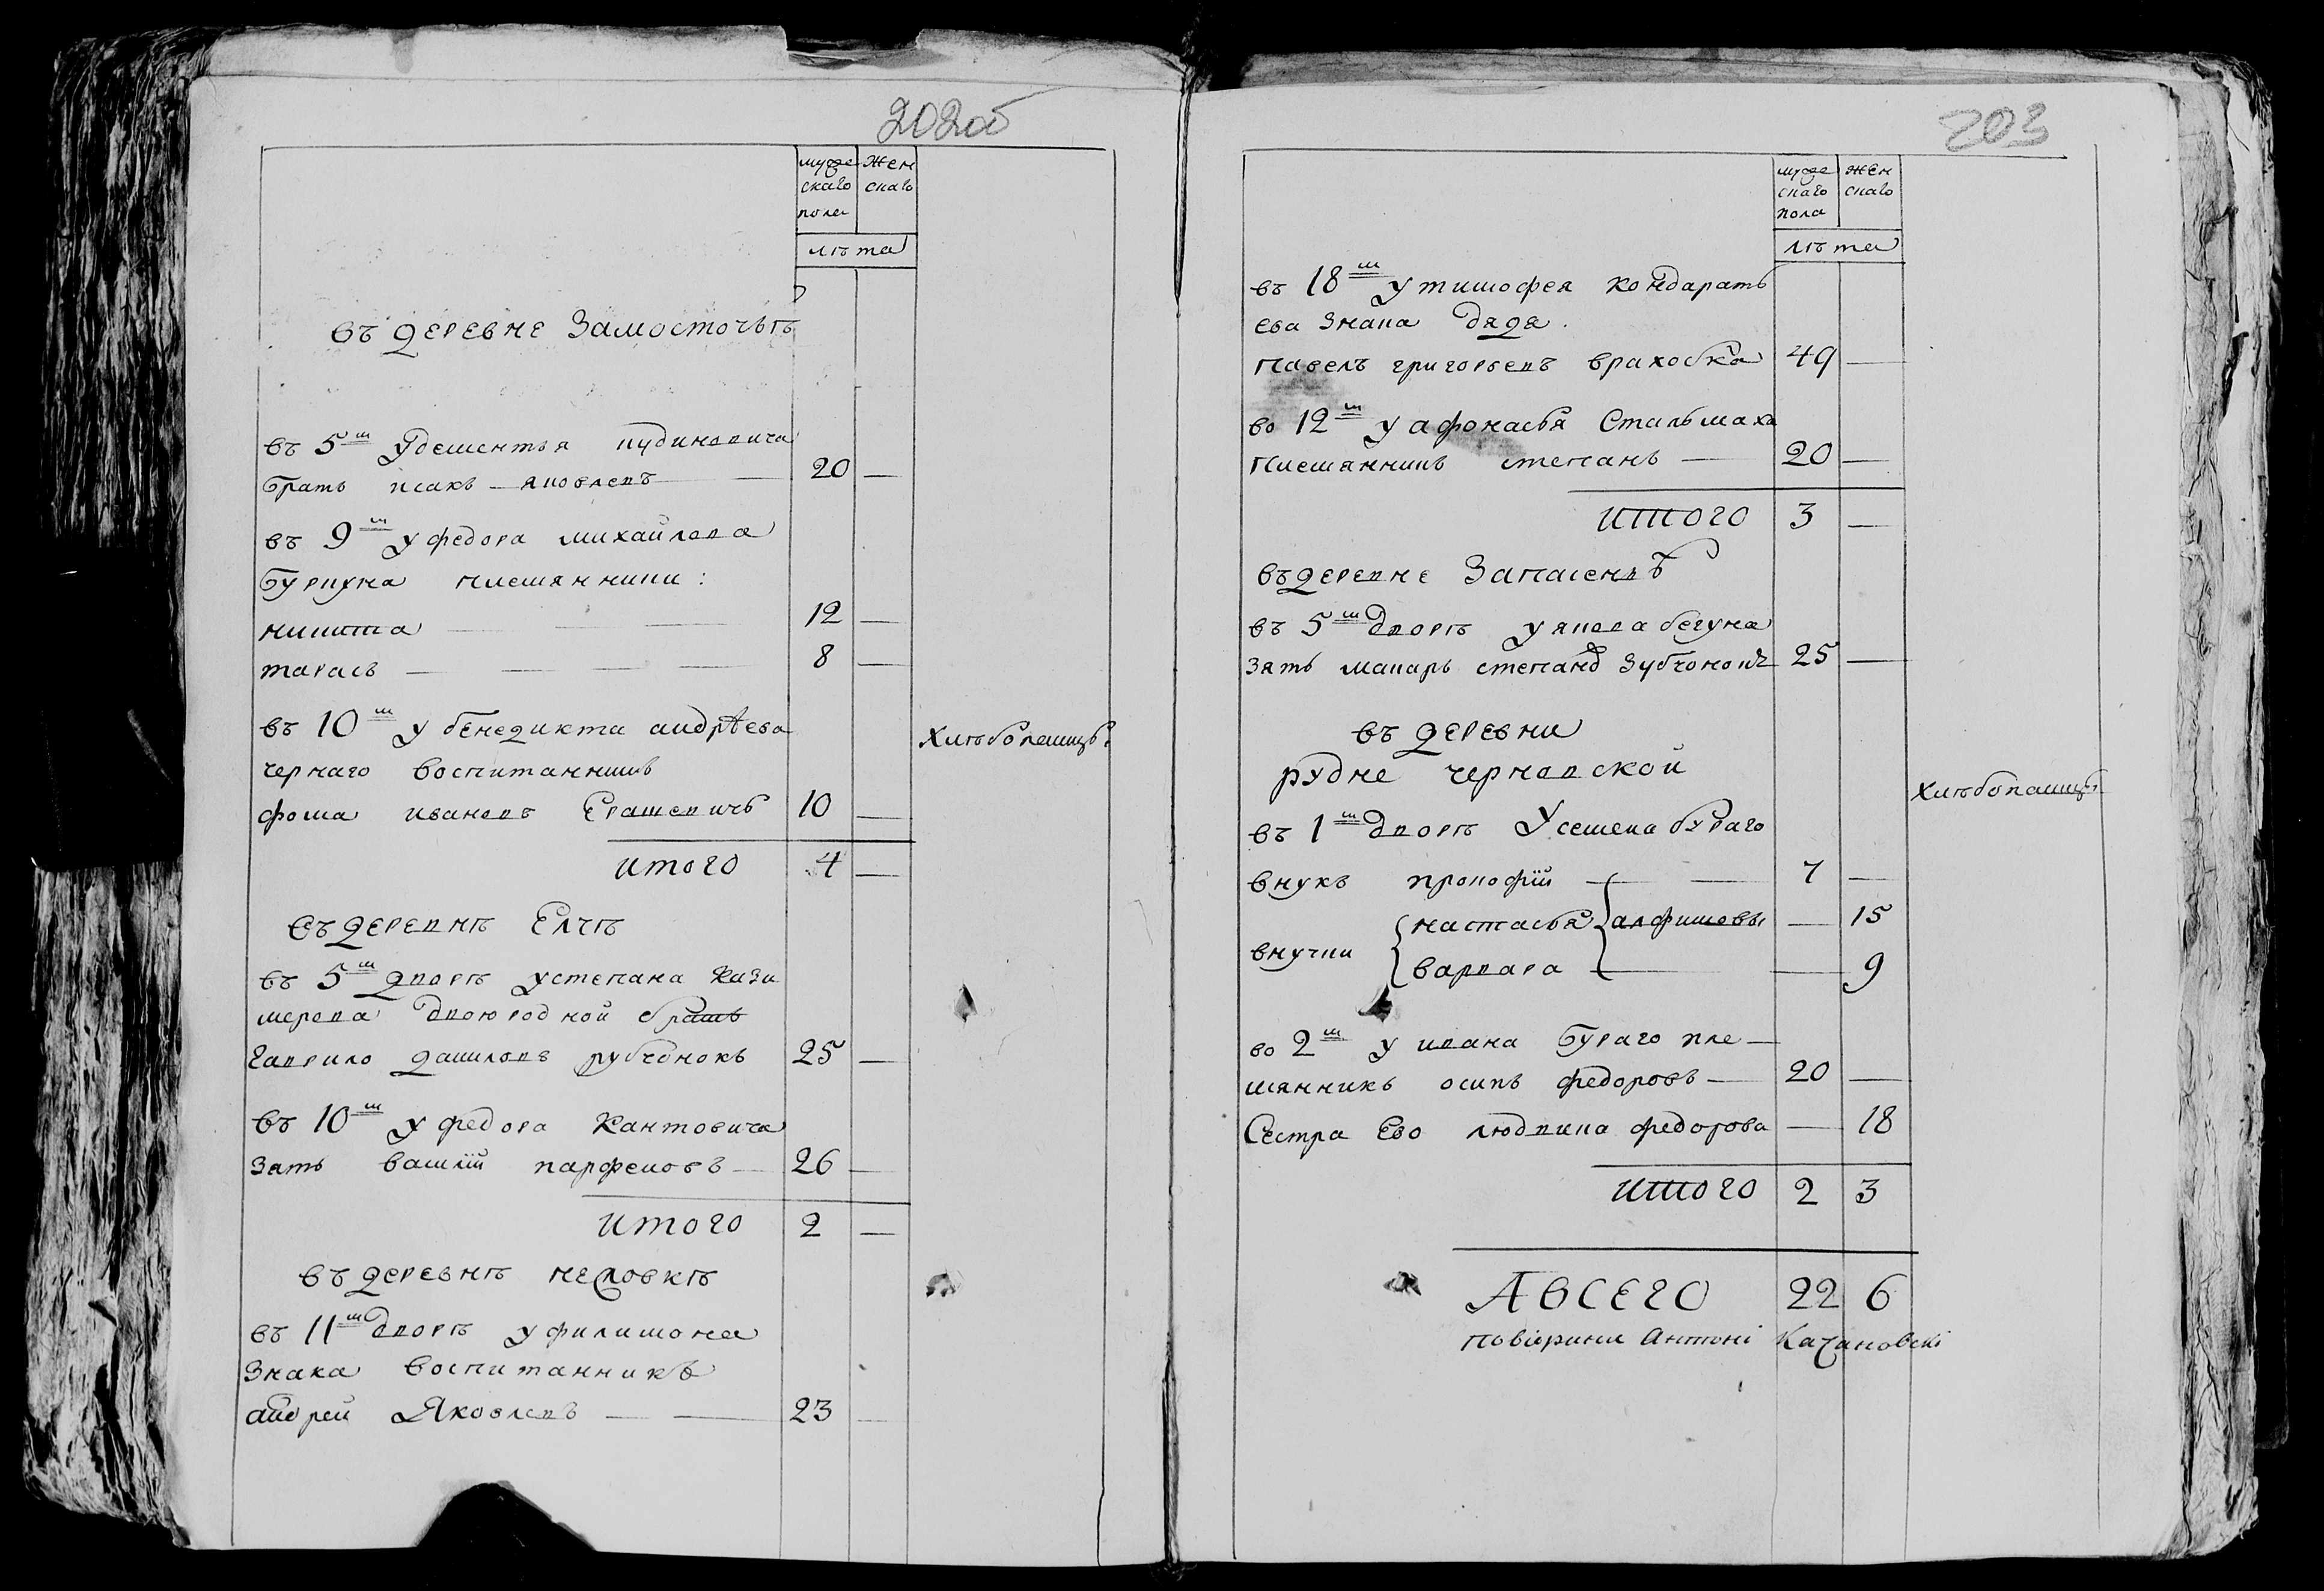 202об
муже
скаго
пола
Жен
скаго
лѣта
въ деревне Замосточьѣ
въ 5м у дементья кудиновича
братъ исакъ яковлевъ 20 —
въ 9м у федора михайлова
Буркуна племянники:
никита 12 —
тарасъ 8 —
въ 10м у бенедикта андрѣева
чернаго воспитанникъ
фома ивановъ Ерашевичь 10 —
итого 4 —
Хлѣбопашцы
въ деревнѣ Елчѣ
въ 5м дворѣ у степана кази
мерова двоюродной братъ
гаврило даниловъ рубчонокъ 25 —
въ 10м у федора Кантовича
зять василій парфеновъ 26 —
итого 2 —
въ деревнѣ
въ 11м дворѣ у филимона
Знака воспитанникъ
андрей Яковлевъ 23 —
203
муже
скаго
пола
жен
скаго
лѣта
въ 18м у тимофея кондарать
ева Знака дядя.
павелъ григорьевъ 49 —
во 12м у афонасья Стальмаха
племянникъ степанъ 20 —
итого 3 —
въ деревне
въ 5м дворѣ у якова бегуна
зять макаръ степанъ зубчонокъ 25 —
въ деревни
рудне черневской
въ 1м дворѣ У семена бураго
внукъ прокофій 7 —
внучки настасья алфимовы — 15
варвара — 9
Хлѣбопашцы
во 2м у ивана Бураго пле—
мянникъ осипъ федоровъ 20 —
Сестра Ево людвика федорова — 18
итого 2 3
А ВСЕГО 22 6
Антоні Качановскі